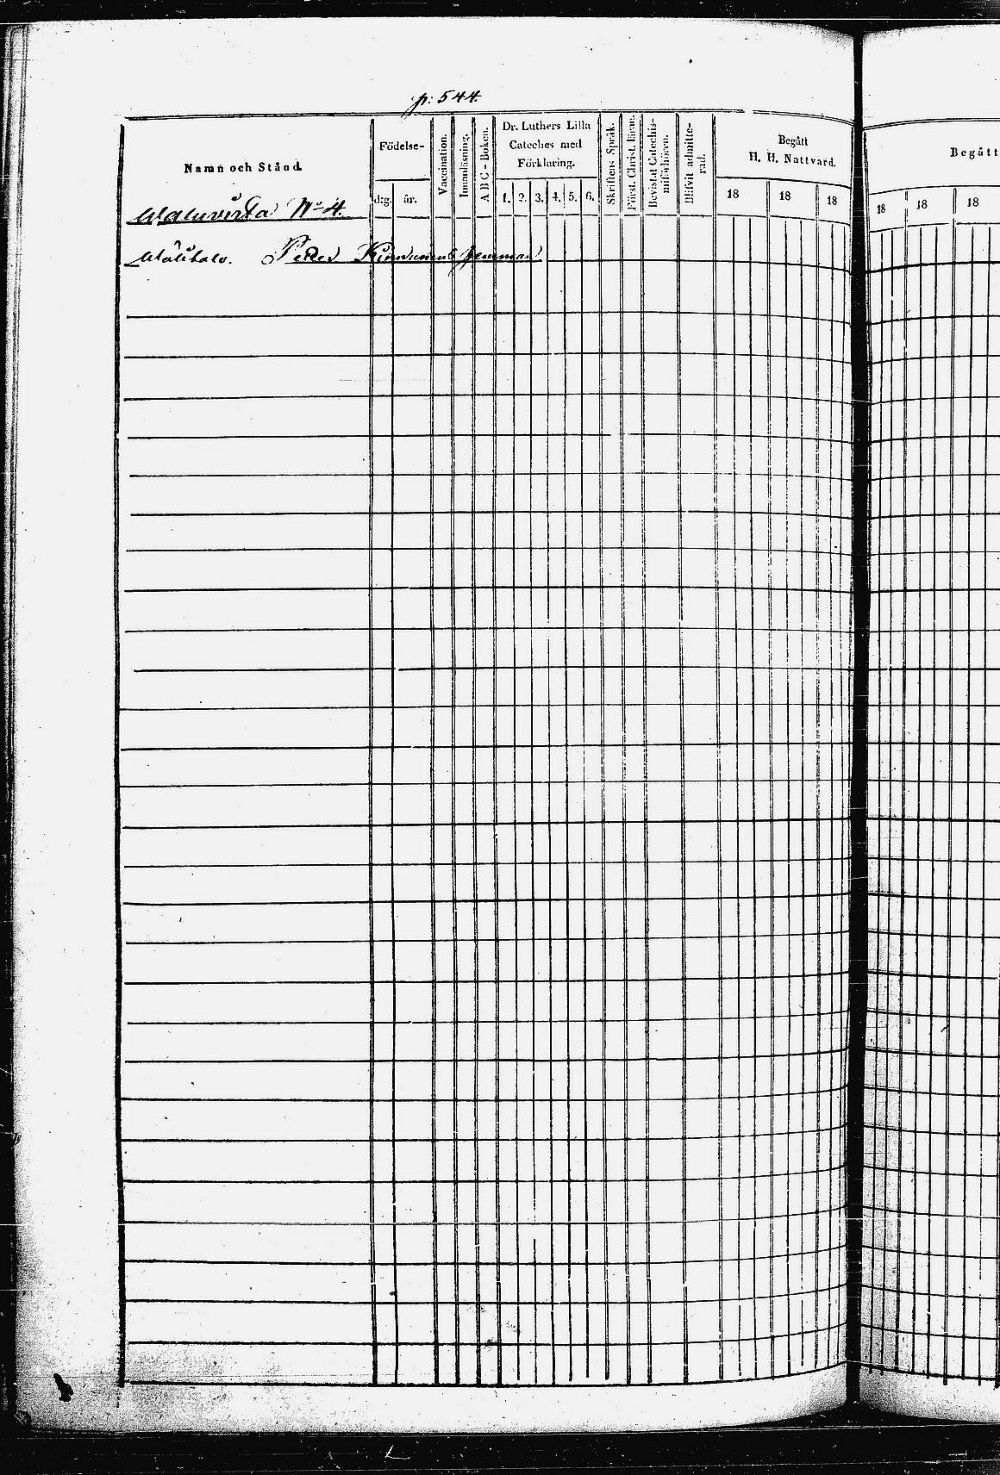 p: 544.
Namn och Stånd.
Födelse-
dag.
år.
Vaccination.
Innanläsning.
A B C - Boken.
Dr. Luthers Lilla
Cateches med
Förklaring.
1. 2. 3. 4. 5. 6.
Skriftens Språk.
Först. Christ. lären.
Bevistat Catechis-
miförhören.
Blifvit admitte-
rad.
Begått
H. H. Nattvard.
18 18 18
Begått
18 18 18
No 4.
Peder